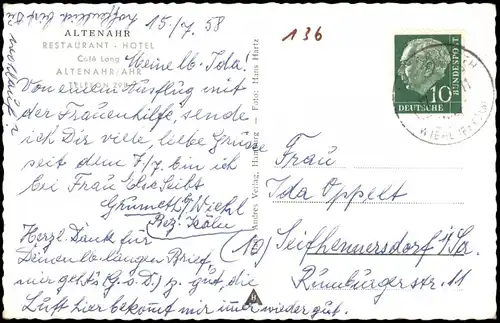 hoffentlich bist Du
wohlauf?
15./7. 58
136
ALTENAHR
RESTAURANT · HOTEL
Café Lang
ALTENAHR/AHR
Meine lb. Ida!
Von einem Ausflug mit
der Frauenhilfe, sende
ich Dir viele, liebe Grüße
seit dem 7./7. bin ich
bei Frau Else Seibt
Grünette b/Wiehl
Bez. Köln
Herzl. Dank für
Deinen lb. langen Brief,
mir geht's (G.s.D.) z. gut, die
Luft hier bekommt mir immer wieder gut.
Andres Verlag, Hamburg — Foto: Hans Hartz
DEUTSCHE
BUNDESPOST
10
WIEHL
Frau
Ida Oppelt
(10) Seifhennersdorf i/Sa.
Rumburgerstr. 11